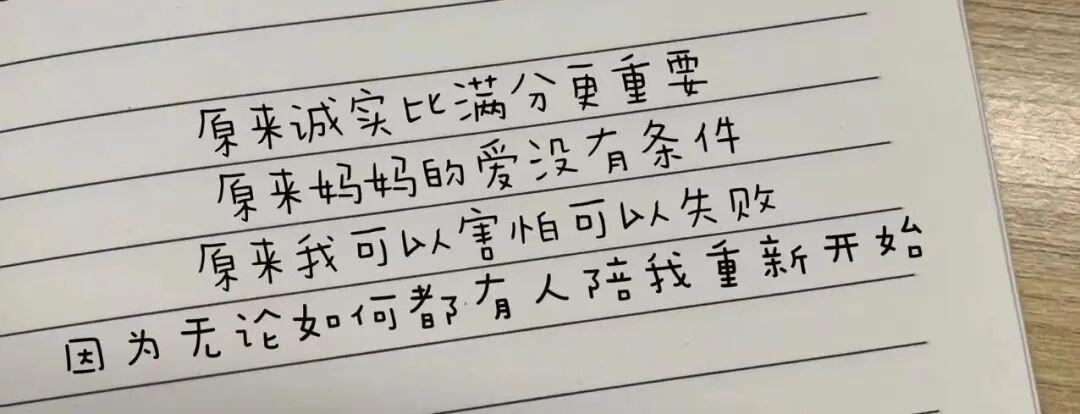 原来诚实比满分更重要
原来妈妈的爱没有条件
原来我可以害怕可以失败
因为无论如何都有人陪我重新开始